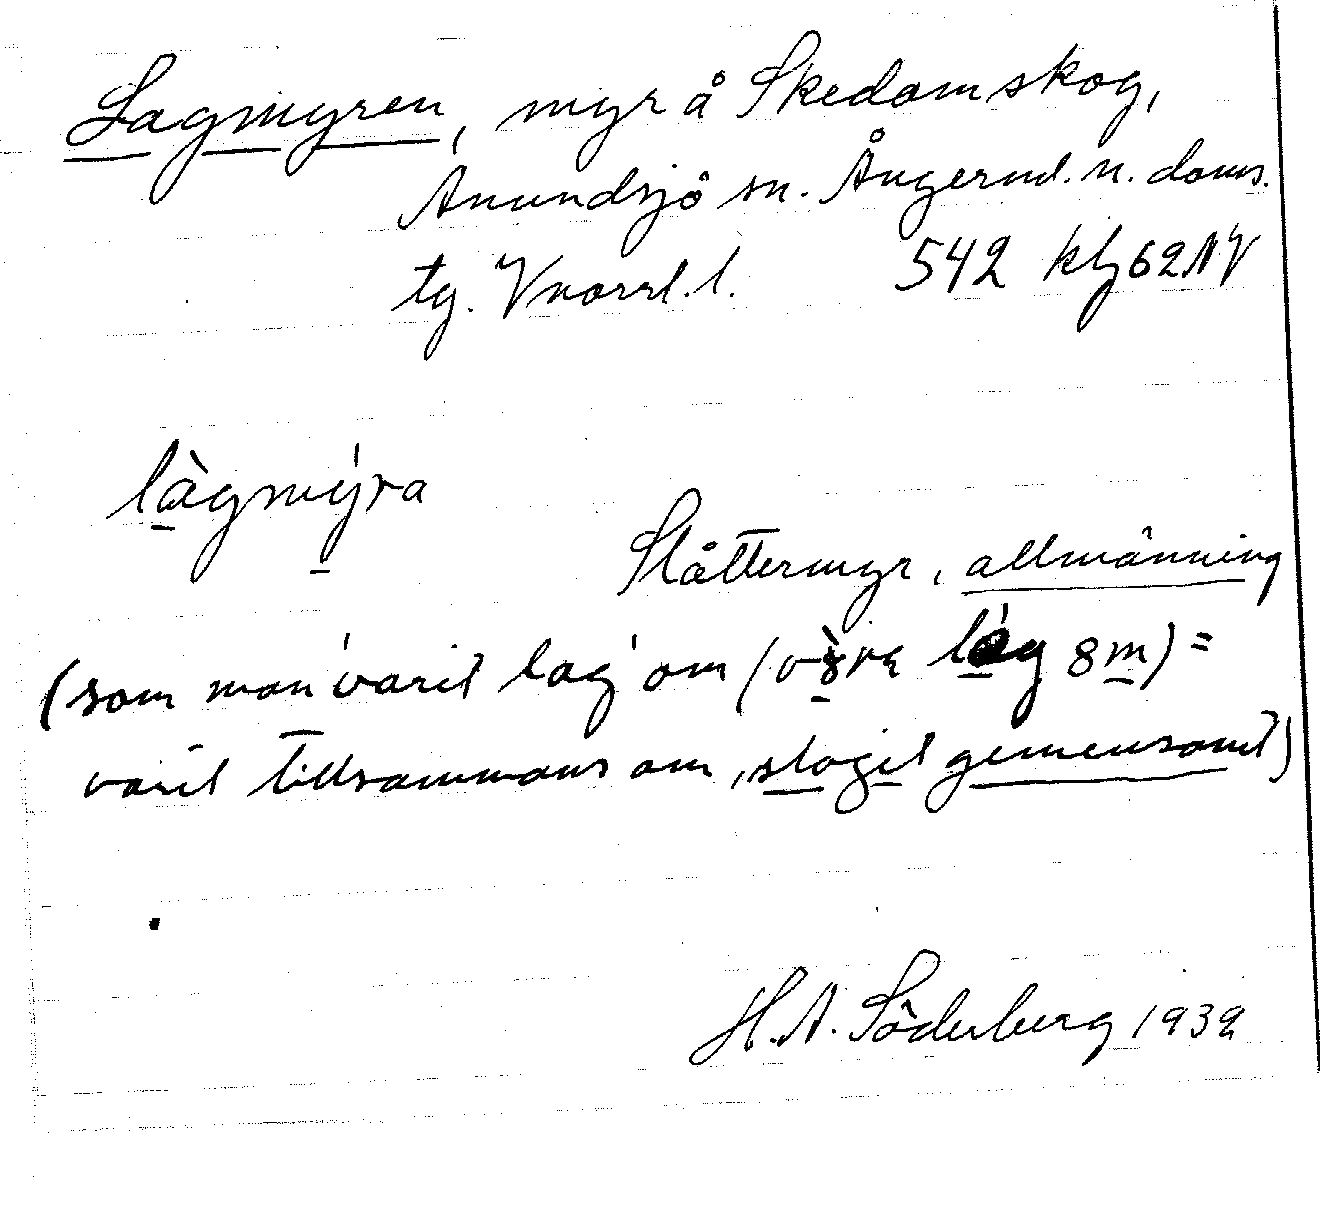 Lagmyren, myr å Skedomskog,
Anundsjö sn. Ångerml. n. doms.
tg. Vnorrl. l. 542 klg 62 NV
làgmýra
Slåttermyr, allmänning
(som man 'varit lag' om (vàra lág 8m) =
varit tillsammans om, slagit gemensamt)
H. A. Söderberg 1939